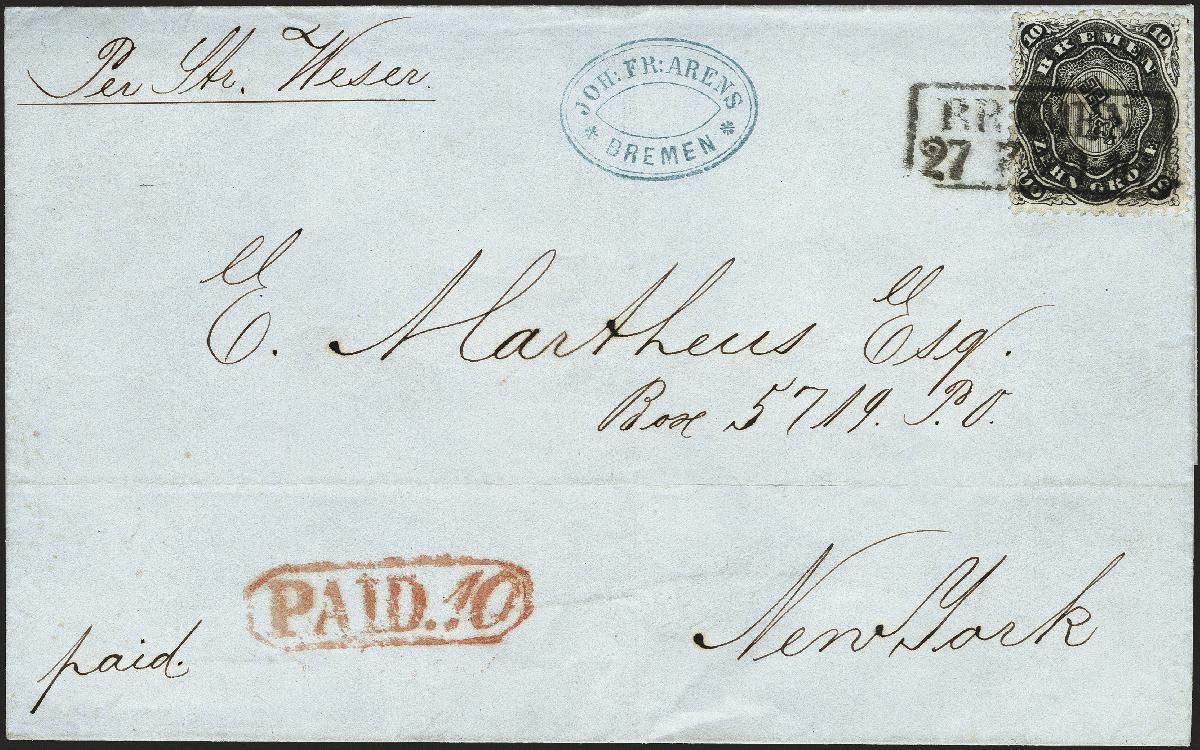 Per Str. Weser.
JOH: FR: ARENS
BREMEN
10 10
BREMEN
ZEHN GROTE
10 10
BREMEN
27
E. Martheus Esq.
Box 5719. P.O.
PAID. 10
paid.
New York